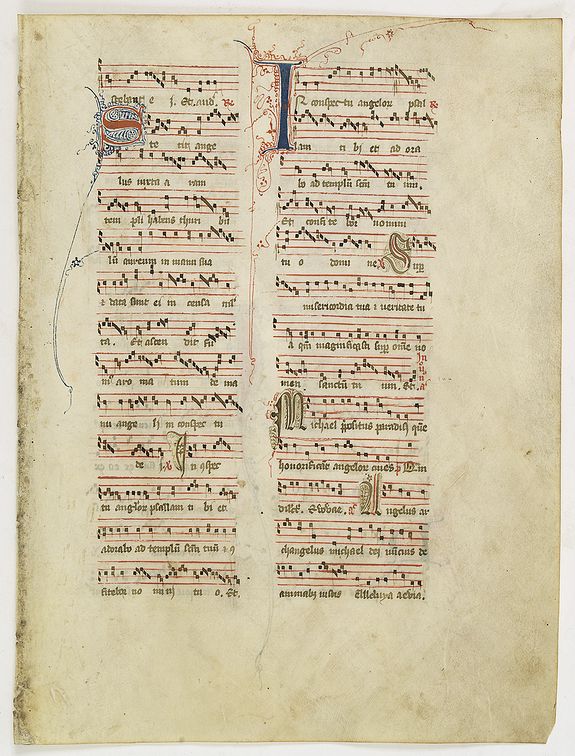 te tit ange
lus iuxta a ram
tem pli habens thuri bu
lū aureum in manu sua
⁊ data sunt ei in censa
ta. Et ascen dit fu
aro ma tum de ma
nu ange li in conspec tu
de i. In
tu angelor psallam ti bi et
adorabo ad templū scm̄ tuū ⁊ 9
fitebor no mi ni tu o. Et.
IN conspec-tu angelor psal
lam ti bi et ad ora
bo ad templū scm̄ tu um.
Et confi te bor nomini
tu o domi ne Sup
misericordia tua ⁊ veritate tu
a qm̄ magnificasti sup omē no
men sanctū tu um. Et.
Michael ppositus paradisi quē
honorificāt angelor ciues
Angelus ar
changelus michael dei nūcius de
animabꝫ iustis Alleluya aevia.